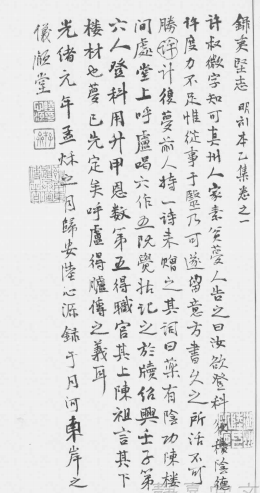 錄夷堅志 明刊本乙集卷之一
許叔微字知可真州人家素貧夢人告之曰汝欲登科須憑陰德
許度力不足惟從事于醫乃可遂留意方書久之所活不可
勝計復夢前人持一詩来贈之其詞曰藥有陰功陳樓
间處堂上呼盧喝六作五既覺姑記之於牘紹興壬子第
六人登科用升甲恩數第五得職官其上陳祖言其下
樓材也夢已先定矣呼盧得臚傳之義耳
光緒元年孟秋之月歸安陸心源錄于月河東岸之
儀顧堂